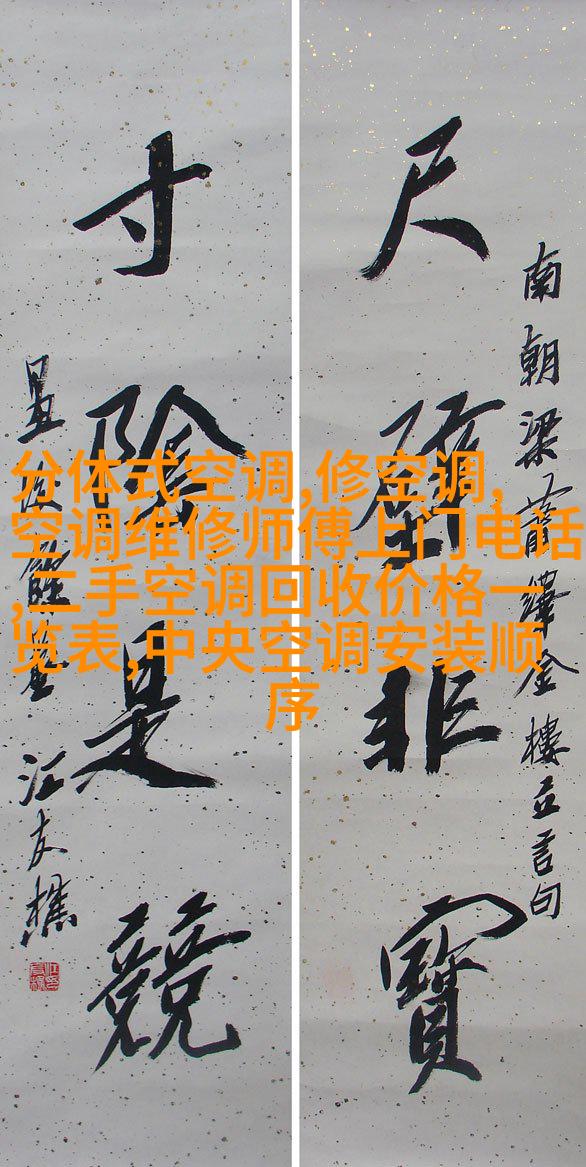 南朝梁蕭繹金樓立言句
尺璧非寶
寸陰是競
汪友樵
分体式空调,修空调,
空调维修师傅上门电话
,二手空调回收价格一
览表,中央空调安装顺
序